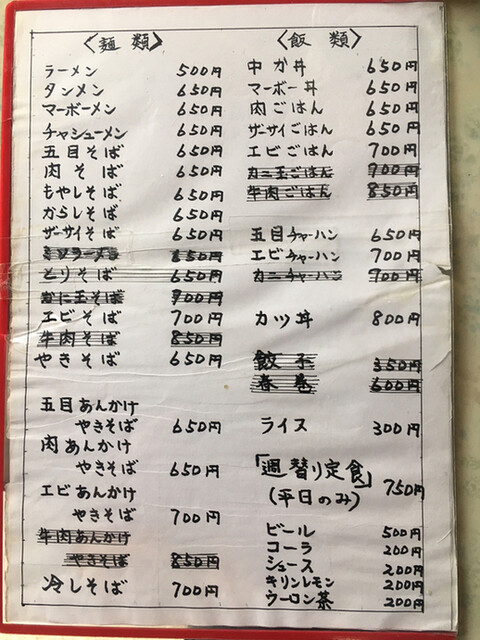 〈麺類〉
ラーメン 500円
タンメン 650円
マーボーメン 650円
チャシューメン 650円
五目そば 650円
肉そば 650円
もやしそば 650円
からしそば 650円
ザーサイそば 650円
ミソラーメン 650円
とりそば 650円
かに玉そば 700円
エビそば 700円
牛肉そば 850円
やきそば 650円
五目あんかけ
やきそば 650円
肉あんかけ
やきそば 650円
エビあんかけ
やきそば 700円
牛肉あんかけ
やきそば 850円
冷しそば 700円
〈飯類〉
中か丼 650円
マーボー丼 650円
肉ごはん 650円
ザーサイごはん 650円
エビごはん 700円
カニ玉ごはん 700円
牛肉ごはん 850円
五目チャーハン 650円
エビチャーハン 700円
カニチャーハン 700円
カツ丼 800円
餃子 350円
春巻 600円
ライス 300円
「週替り定食」
(平日のみ) 750円
ビール 500円
コーラ 200円
ジュース 200円
キリンレモン 200円
ウーロン茶 200円